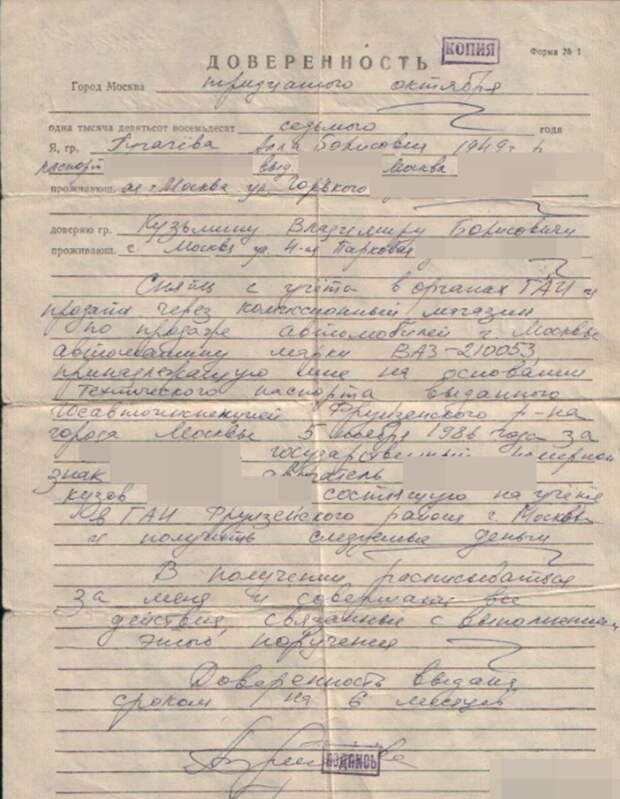 КОПИЯ
Форма № 1
ДОВЕРЕННОСТЬ
Город Москва тридцатого октября
одна тысяча девятьсот восемьдесят седьмого года
Я, гр. Пугачёва Алла Борисовна 1949 г.
паспорт выд. Москва
проживающ. ая г. Москва ул. Горького
доверяю гр. Кузьмину Владимиру Борисовичу
проживающ. г. Москва ул. 4-ая Парковая
Снять с учёта в органах ГАИ и
продать через комиссионный магазин
по продаже автомобилей г. Москвы
автомашину марки ВАЗ-210053
принадлежащую мне на основании
технического паспорта выданного
Госавтоинспекцией Фрунзенского р-на
города Москвы 5 ноября 1986 года за
государственный номерной
знак двигатель
кузов состоящую на учёте
в ГАИ Фрунзенского района г. Москвы
и получить следуемые деньги
В получении расписываться
за меня и совершать все
действия, связанные с выполнением
этого поручения
Доверенность выдана
сроком на 6 месяцев
ПОДПИСЬ